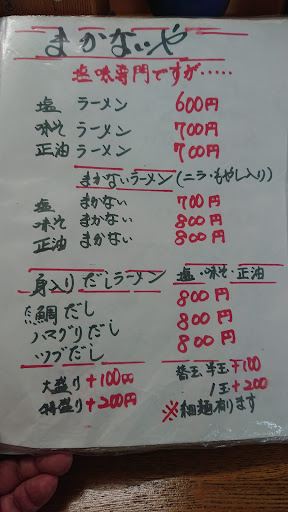 まかないや
塩味専門ですが・・・・・
塩 ラーメン 600円
味そ ラーメン 700円
正油 ラーメン 700円
まかないラーメン(ニラ・もやし入り)
塩 まかない 700円
味そ まかない 800円
正油 まかない 800円
身入りだしラーメン 塩・味そ・正油
鯛だし 800円
ハマグリだし 800円
ツブだし 800円
大盛り+100円
特盛り+200円
替玉、半玉+100
1玉+200
※細麺有ります